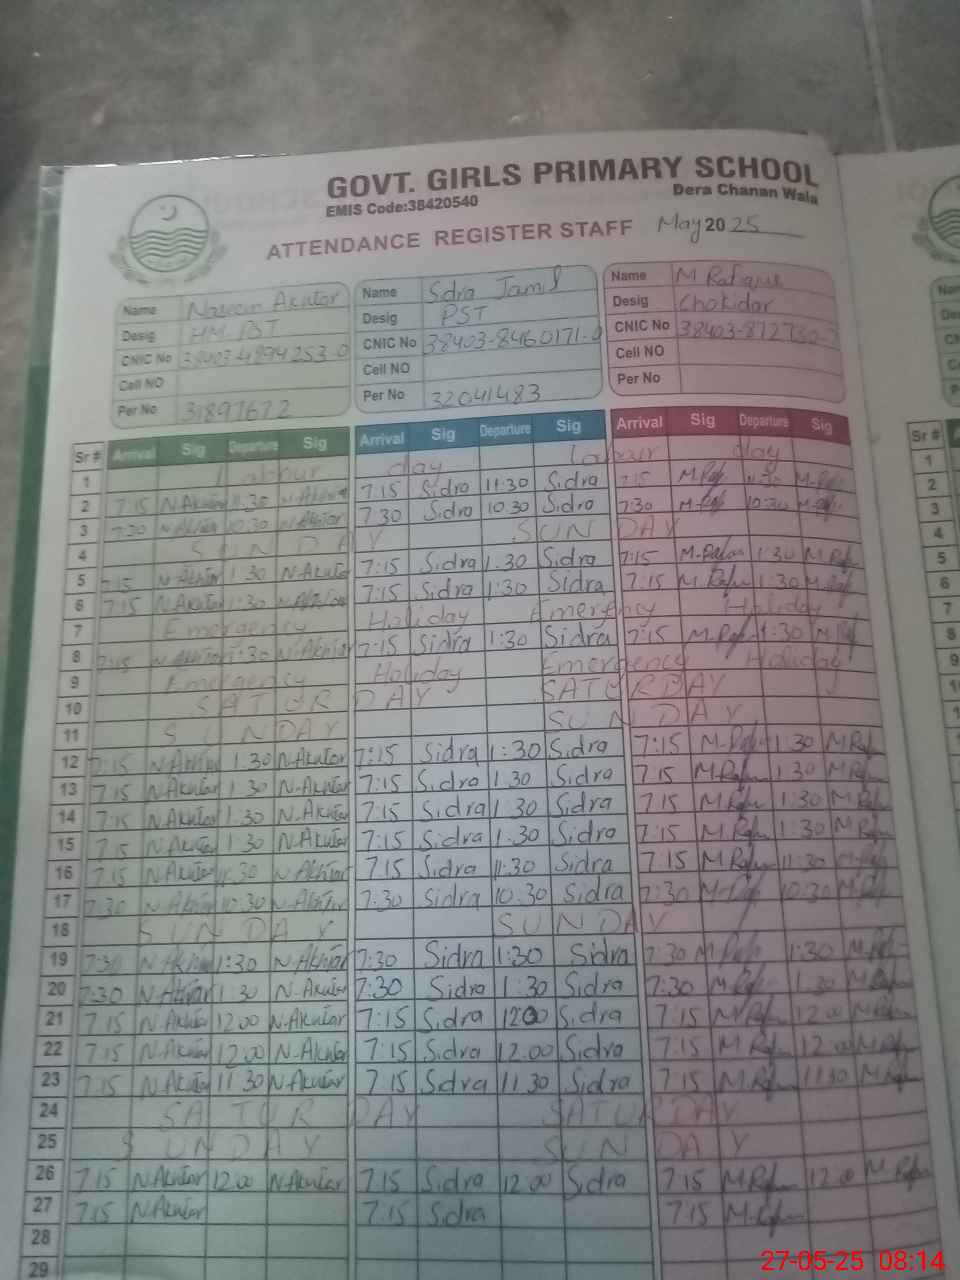 GOVT. GIRLS PRIMARY SCHOOL
EMIS Code:38420540 Dera Chanan Wala
ATTENDANCE REGISTER STAFF May 2025
Name Naseem Akutar Name Sdra Jamil Name M Rafique
Desig HM-PST Desig PST Desig Chokidar
CNIC No 38403-4894253-0 CNIC No 38403-8460171-0 CNIC No 38403-8727730-
Cell NO Cell NO Cell NO
Per No 31897672 Per No 32041483 Per No
Sr # Arrival Sig Departure Sig Arrival Sig Departure Sig Arrival Sig Departure Sig
1 Labour day Labour day
2 7.15 N.Akutar 11.30 N.Akhtar 7.15 Sidra 11:30 Sidra 7:15 M.Raf 11:30 M.Raf
3 7:30 N.Akhtar 10:30 N.Akhtar 7:30 Sidra 10.30 Sidra 7:30 M.Raf 10:30 M.Raf
4 SUNDAY SUNDAY
5 7:15 N.Akhtar 1.30 N.Akutar 7:15 Sidra 1.30 Sidra 7:15 M.Rafu 1:30 M.Rafu
6 7:15 N.Akutar 1:30 N.Akhtar 7:15 Sidra 1:30 Sidra 7:15 M.Rafu 1:30 M.Raf
7 Emergency Holiday Emergency Holiday
8 7:15 N.Akhtar 1:30 N.Akhtar 7:15 Sidra 1:30 Sidra 7:15 M.Raf 1:30 M.Raf
9 Emergency Holiday Emergency Holiday
10 SATURDAY SATURDAY
11 SUNDAY SUNDAY
12 7:15 N.Akhtar 1.30 N.Akutar 7:15 Sidra 1:30 Sidra 7:15 M.Rafu 1:30 M.Rafu
13 7.15 N.Akutar 1.30 N.Akutar 7:15 Sidra 1.30 Sidra 7.15 M.Rafu 1:30 M.Rafu
14 7:15 N.Akutar 1:30 N.Akutar 7:15 Sidra 1:30 Sidra 7.15 M.Rafu 1:30 M.Rafu
15 7.15 N.Akutar 1:30 N.Akutar 7:15 Sidra 1.30 Sidra 7:15 M.Rafu 1:30 M.Rafu
16 7.15 N.Akutar 11.30 N.Akhtar 7.15 Sidra 11:30 Sidra 7:15 M.Rafu 11:30 M.Raf
17 7:30 N.Akhtar 10.30 N.Akhtar 7:30 Sidra 10:30 Sidra 7:30 M.Raf 10:30 M.Raf
18 SUNDAY SUNDAY
19 7:30 N.Akhtar 1:30 N.Akhtar 7:30 Sidra 1:30 Sidra 7:30 M.Rafu 1:30 M.Raf
20 7:30 N.Akhtar 1:30 N.Akutar 7:30 Sidra 1:30 Sidra 7:30 M.Rafu 1:30 M.Rafu
21 7.15 N.Akhtar 12.00 N.Akutar 7:15 Sidra 12.00 Sidra 7:15 M.Rafu 12.00 M.Rafu
22 7.15 N.Akutar 12.00 N.Akhtar 7:15 Sidra 12.00 Sidra 7:15 M.Rafu 12.00 M.Rafu
23 7.15 N.Akutar 11.30 N.Akutar 7.15 Sidra 11.30 Sidra 7.15 M.Rafu 11:30 M.Rafu
24 SATURDAY SATURDAY
25 SUNDAY SUNDAY
26 7.15 N.Akutar 12.00 N.Akutar 7.15 Sidra 12.00 Sidra 7.15 M.Rafu 12.00 M.Rafu
27 7.15 N.Akutar 7.15 Sidra 7.15 M.Rafu
28
29
27-05-25 08:14